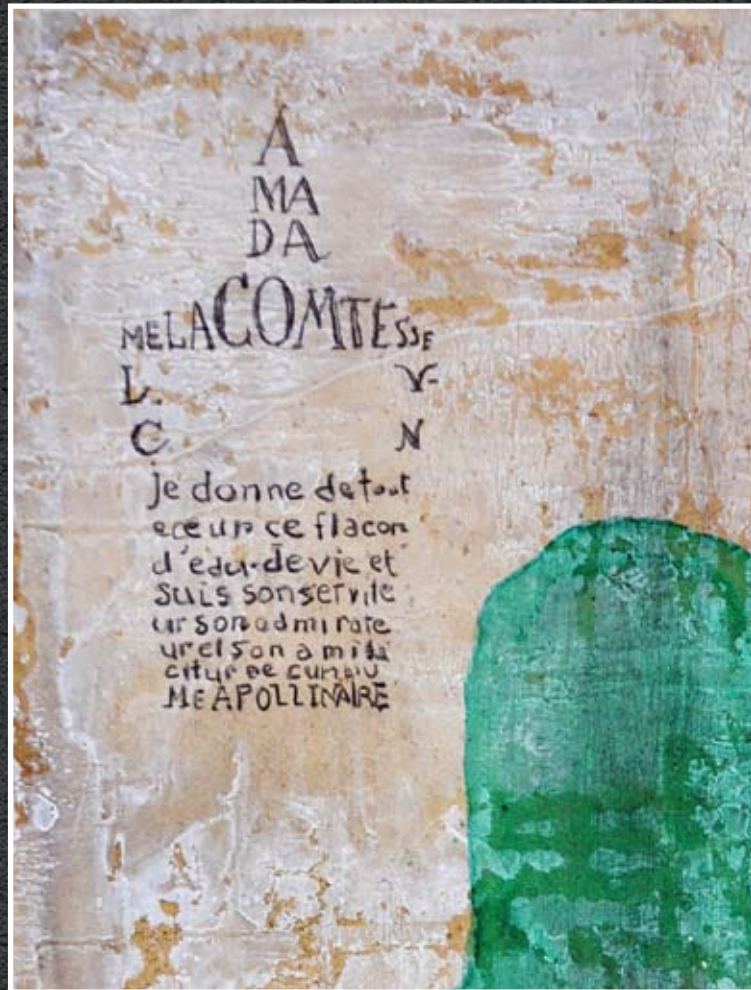 A
MA
DA
MELACOMTESSE
L. V-
C. N
Je donne detout
cœur ce flacon
d'eau-de vie et
suis sonservite
ur sonadmirate
uretson ami ta
ME APOLLINAIRE